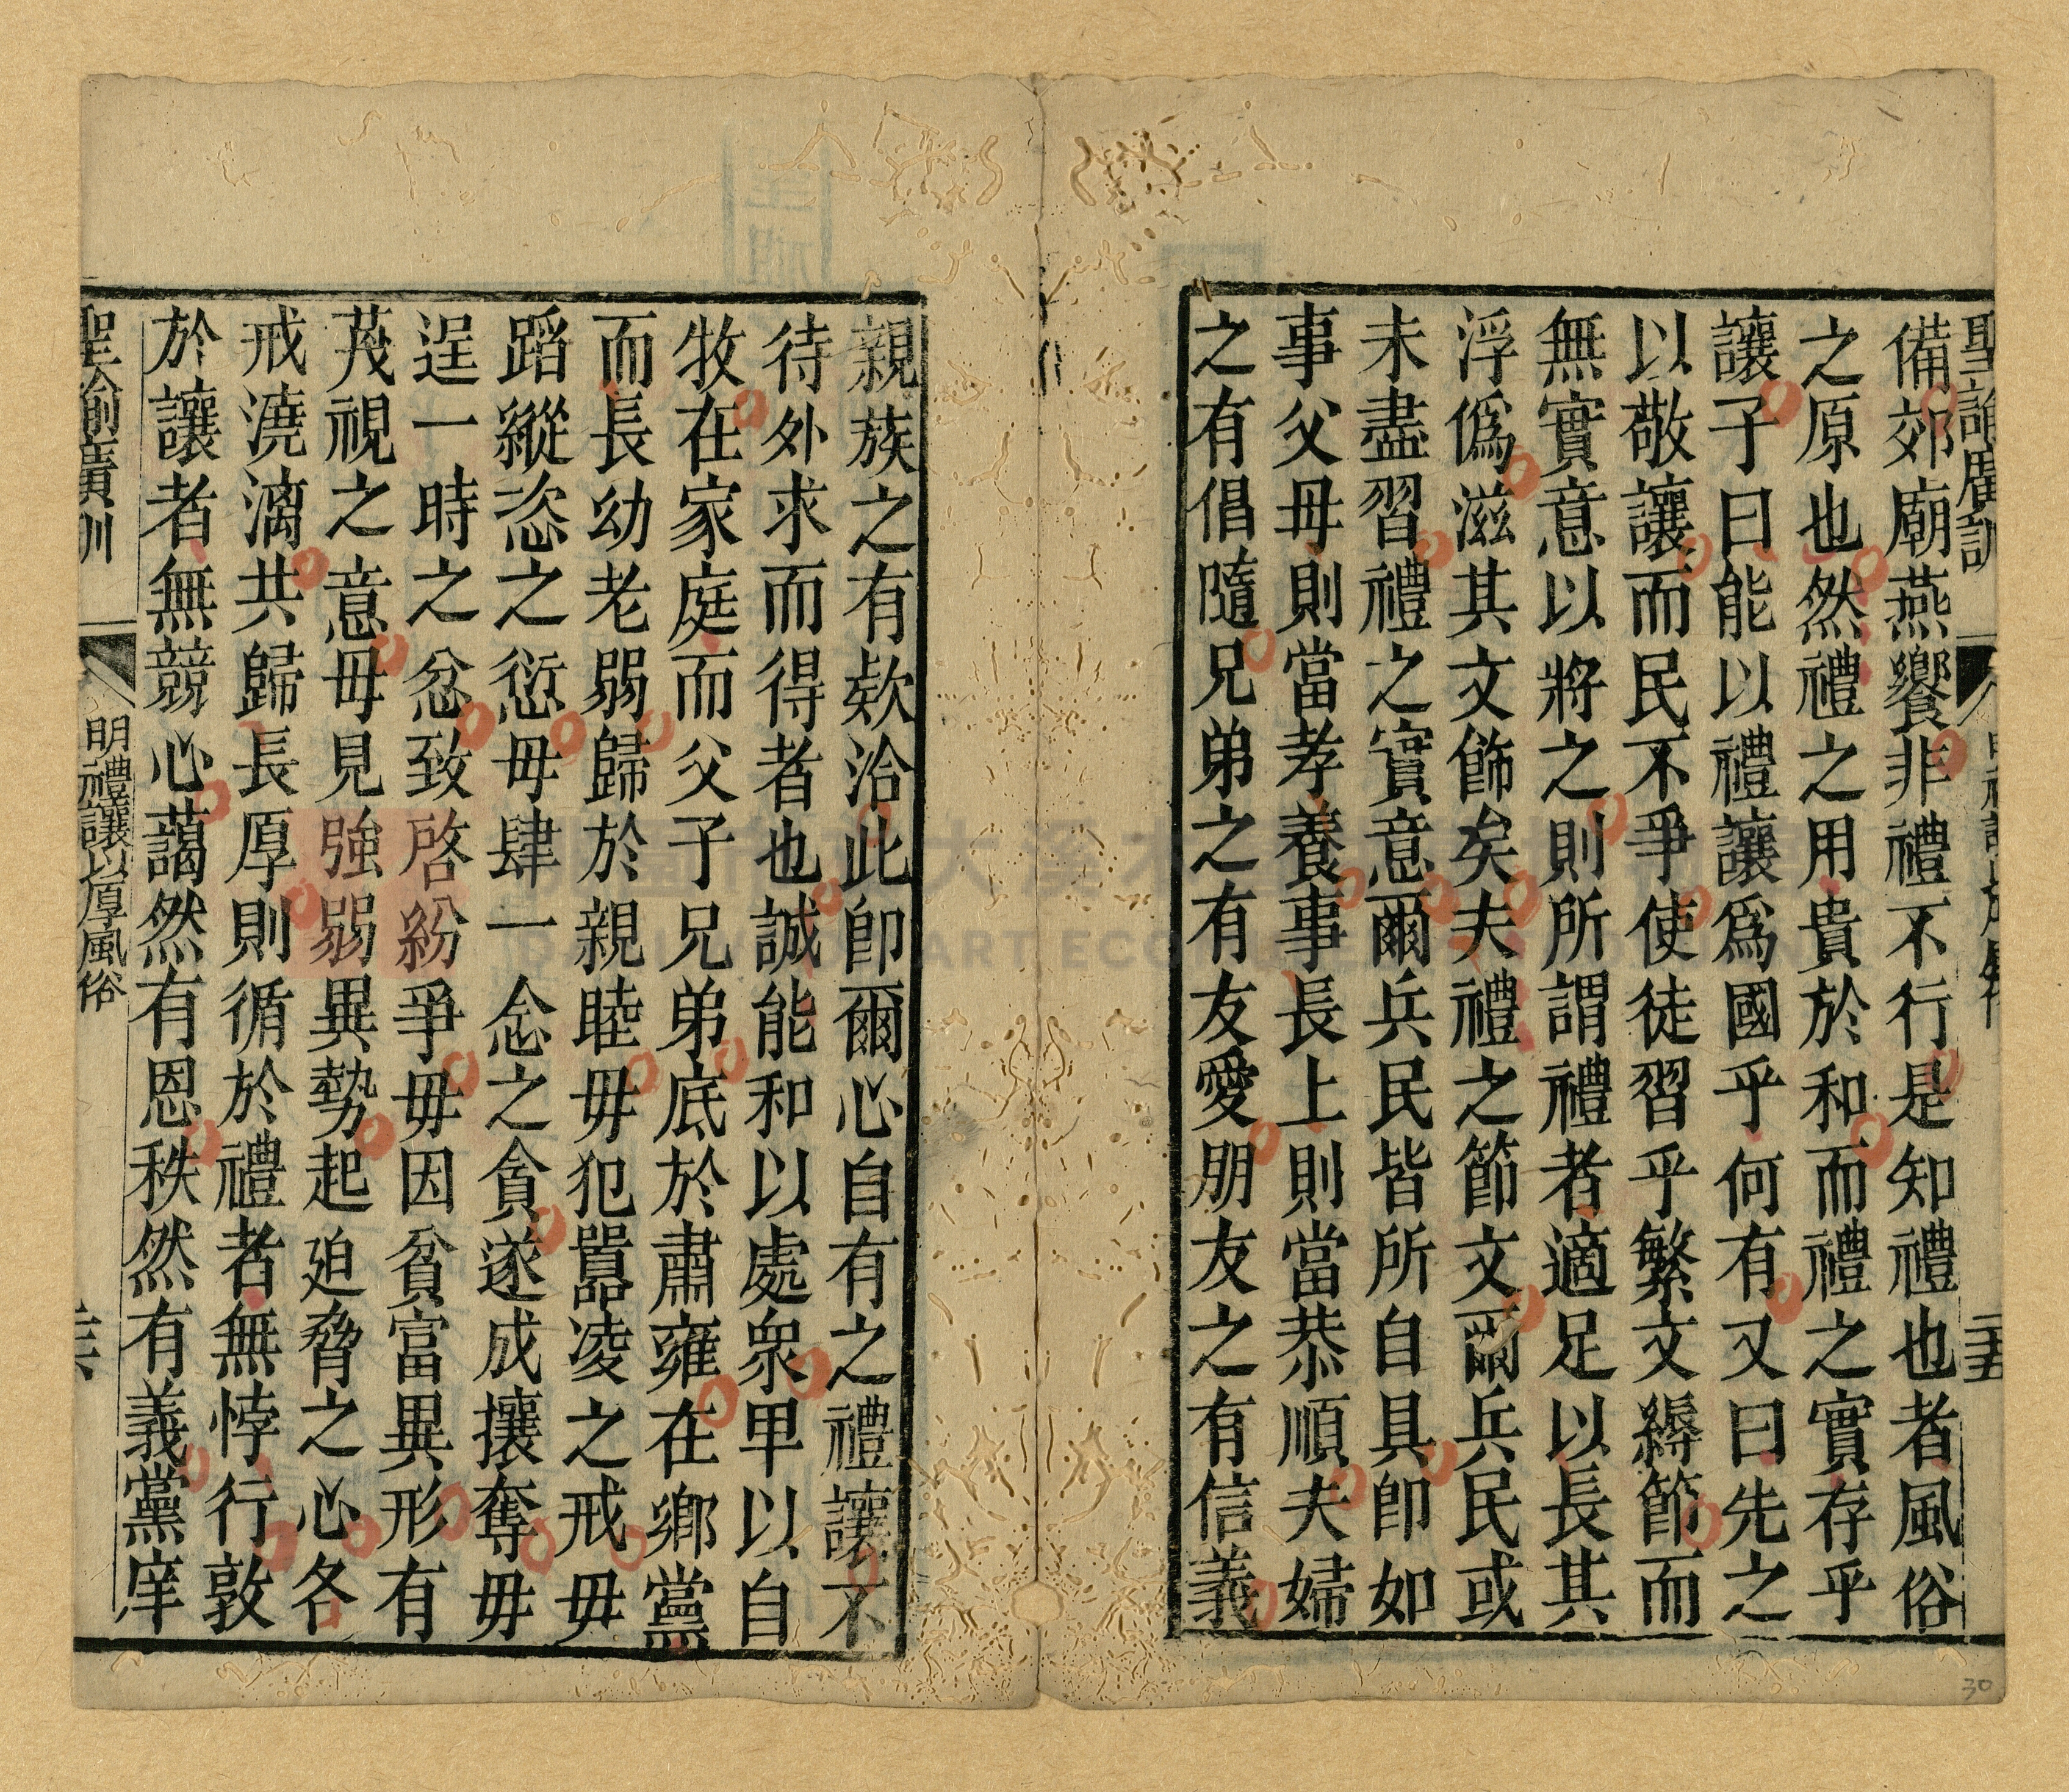 聖諭廣訓
二十五
備郊廟燕饗非禮不行是知禮也者風俗
之原也然禮之用貴於和而禮之實存乎
讓子曰能以禮讓爲國乎何有又曰先之
以敬讓而民不爭使徒習乎繁文縟節而
無實意以將之則所謂禮者適足以長其
浮僞滋其文飾矣夫禮之節文爾兵民或
未盡習禮之實意爾兵民皆所自具卽如
事父母則當孝養事長上則當恭順夫婦
之有倡隨兄弟之有友愛朋友之有信義
親族之有欵洽此卽爾心自有之禮讓不
待外求而得者也誠能和以處衆卑以自
牧在家庭而父子兄弟底於肅雍在鄉黨
而長幼老弱歸於親睦毋犯囂凌之戒毋
蹈縱恣之愆毋肆一念之貪遂成攘奪毋
逞一時之忿致啓紛爭毋因貧富異形有
蔑視之意毋見強弱異勢起迫脅之心各
戒澆漓共歸長厚則循於禮者無悖行敦
於讓者無競心藹然有恩秩然有義黨庠
聖諭廣訓
明禮讓以厚風俗
30